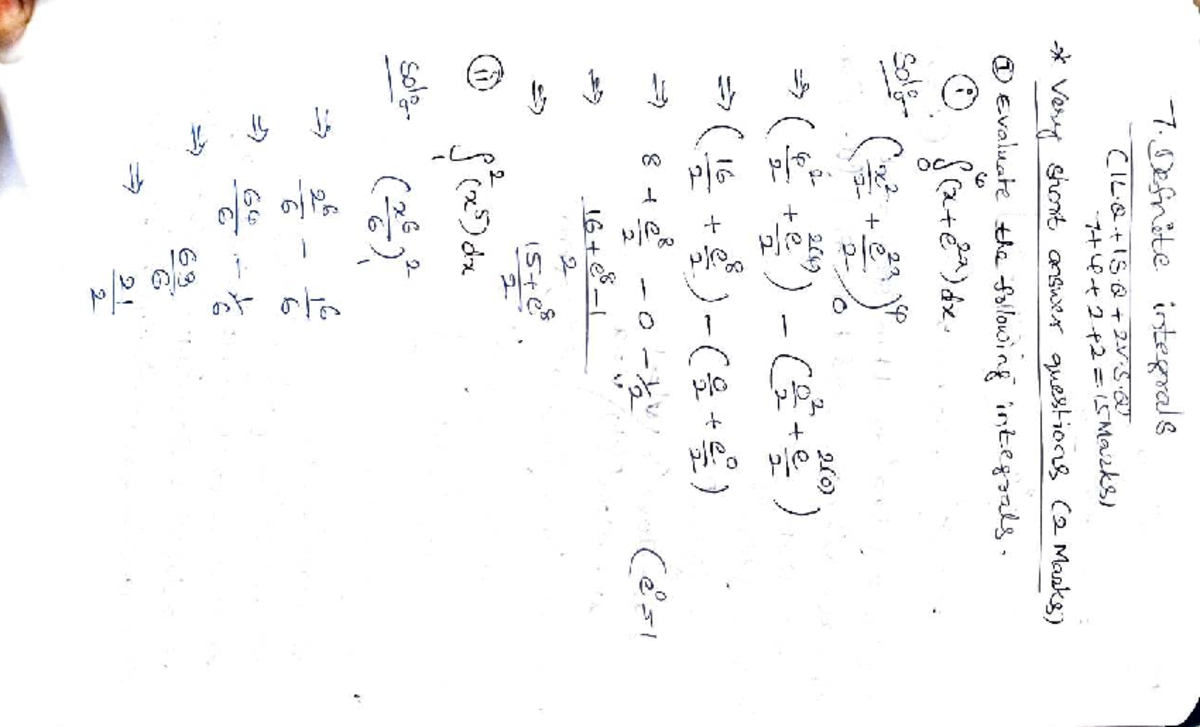 7. Definite integrals
(1LQ+1SQ+2V.S.Q)
7+4+2+2=15Marks)
* Very short answer questions (2 Marks)
① Evaluate the following integrals.
(i) ∫₀⁴ (x+e^{2x}) dx.
Sol:- (x²/2 + e^{2x}/2)₀⁴
⇒ (4²/2 + e^{2(4)}/2) - (0²/2 + e^{2(0)}/2)
⇒ (16/2 + e⁸/2) - (0/2 + e⁰/2)
⇒ 8 + e⁸/2 - 0 - 1/2 (e⁰=1
⇒ 16+e⁸-1/2
⇒ 15+e⁸/2
(ii) ∫₁² (x⁵) dx
Sol:- (x⁶/6)₁²
⇒ 2⁶/6 - 1⁶/6
⇒ 64/6 - 1/6
⇒ 63/6
⇒ 21/2